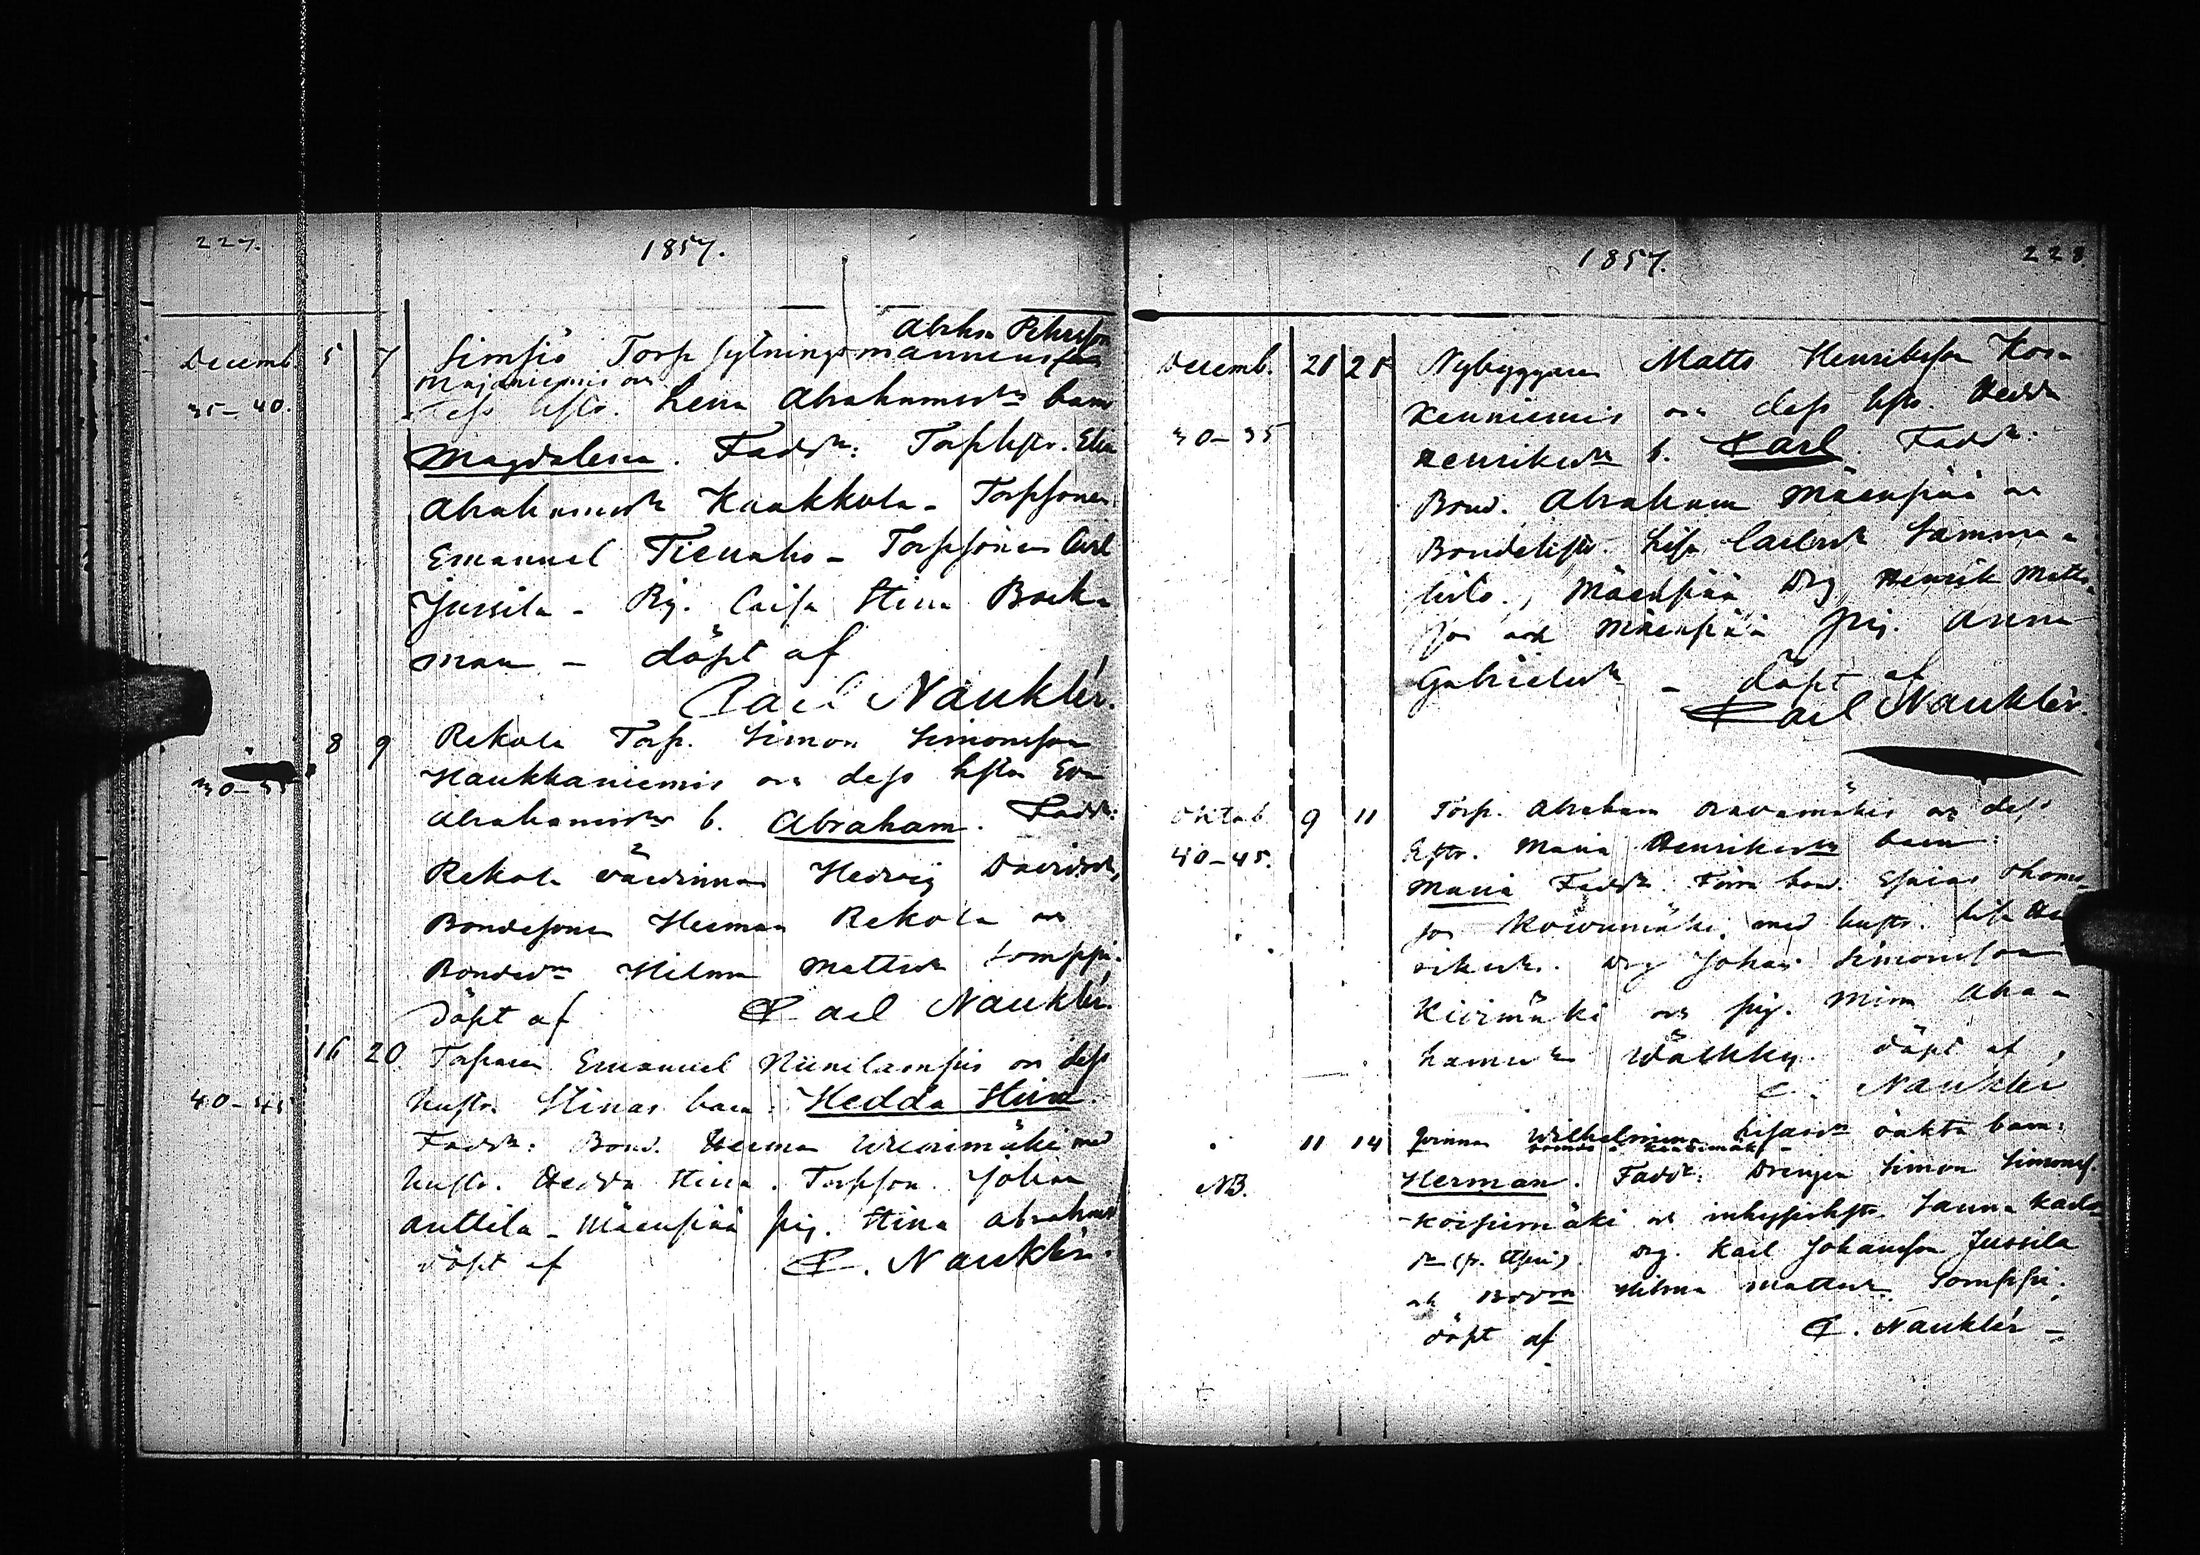 227.
1857.
Abrah. Petersson
Decemb. 5 7 Simsiö Torp sytningsmannens
Majaniemis o.
35-40. dess hstr. Lena Abrahamsdr barn
Magdalena. Faddr: Torphstr. Elis
Abrahamsdr Kaukkola - Torpsonen
Emanuel Tienaho - Torpsonen Carl
Jussila - Pig. Caisa Stina Back
man - döpt af
Carl Nauklér.
" 8 9 Rekola Torp. Simon Simonsson
30-35 Haukkaniemis o. dess hstr Eva
Abrahamsdr b. Abraham. Faddr:
Rekola värdinnan Hedvig Davidsdr,
Bondesonen Herman Rekola o.
Bondedr Hilma Mattsdr Somppi.
Döpt af Carl Nauklér.
16 20 Torparen Emanuel Niinilampis o. dess
40-45 hustr. Stinas barn. Hedda Stina.
Faddr: Bond. Herman med
hustr. Hedda Stina. Torpson. Johan
Anttila - Mäenpää pig. Stina Abrahamsd
döpt af C. Nauklér.
1857.
228.
Decemb. 21 25 Nybyggaren Matts Henriksson Kos
kenniemis o. dess hstr. Hedda
30-35 Henriksdr b. Carl. Faddr:
Bond. Abraham Mäenpää o.
Bondehstr. Lisa Carlsdr Samma
Mäenpää Drg Henrik Matts
son och Mäenpää pig. Anna
Gabrielsdr - döpt af
Carl Nauklér.
Oktob. 9 11 Torp. Abraham Oravamäkis o. dess
40-45. hstr. Maria Henriksdr barn:
Maria Faddr. Förra bond. Esaias Thoms
son med hustr. Lisa Hen
riksdr. Drg Johan Simonsson
Kivimäki o. pig. Mina Abra
hamsdr Wälkky. döpt af,
C. Nauklér
" 11 14 Qvinnan Wilhelmina Lisasdr oäkta barn:
NB. Herman. Faddr: Drengen Simon Simonss
Koisimäki o. inhyseshstr. Sanna Karls
dr Drg. Karl Johansson Jussila
och Bonddr Hilma Mattsdr. Somppi.
döpt af C. Nauklér -